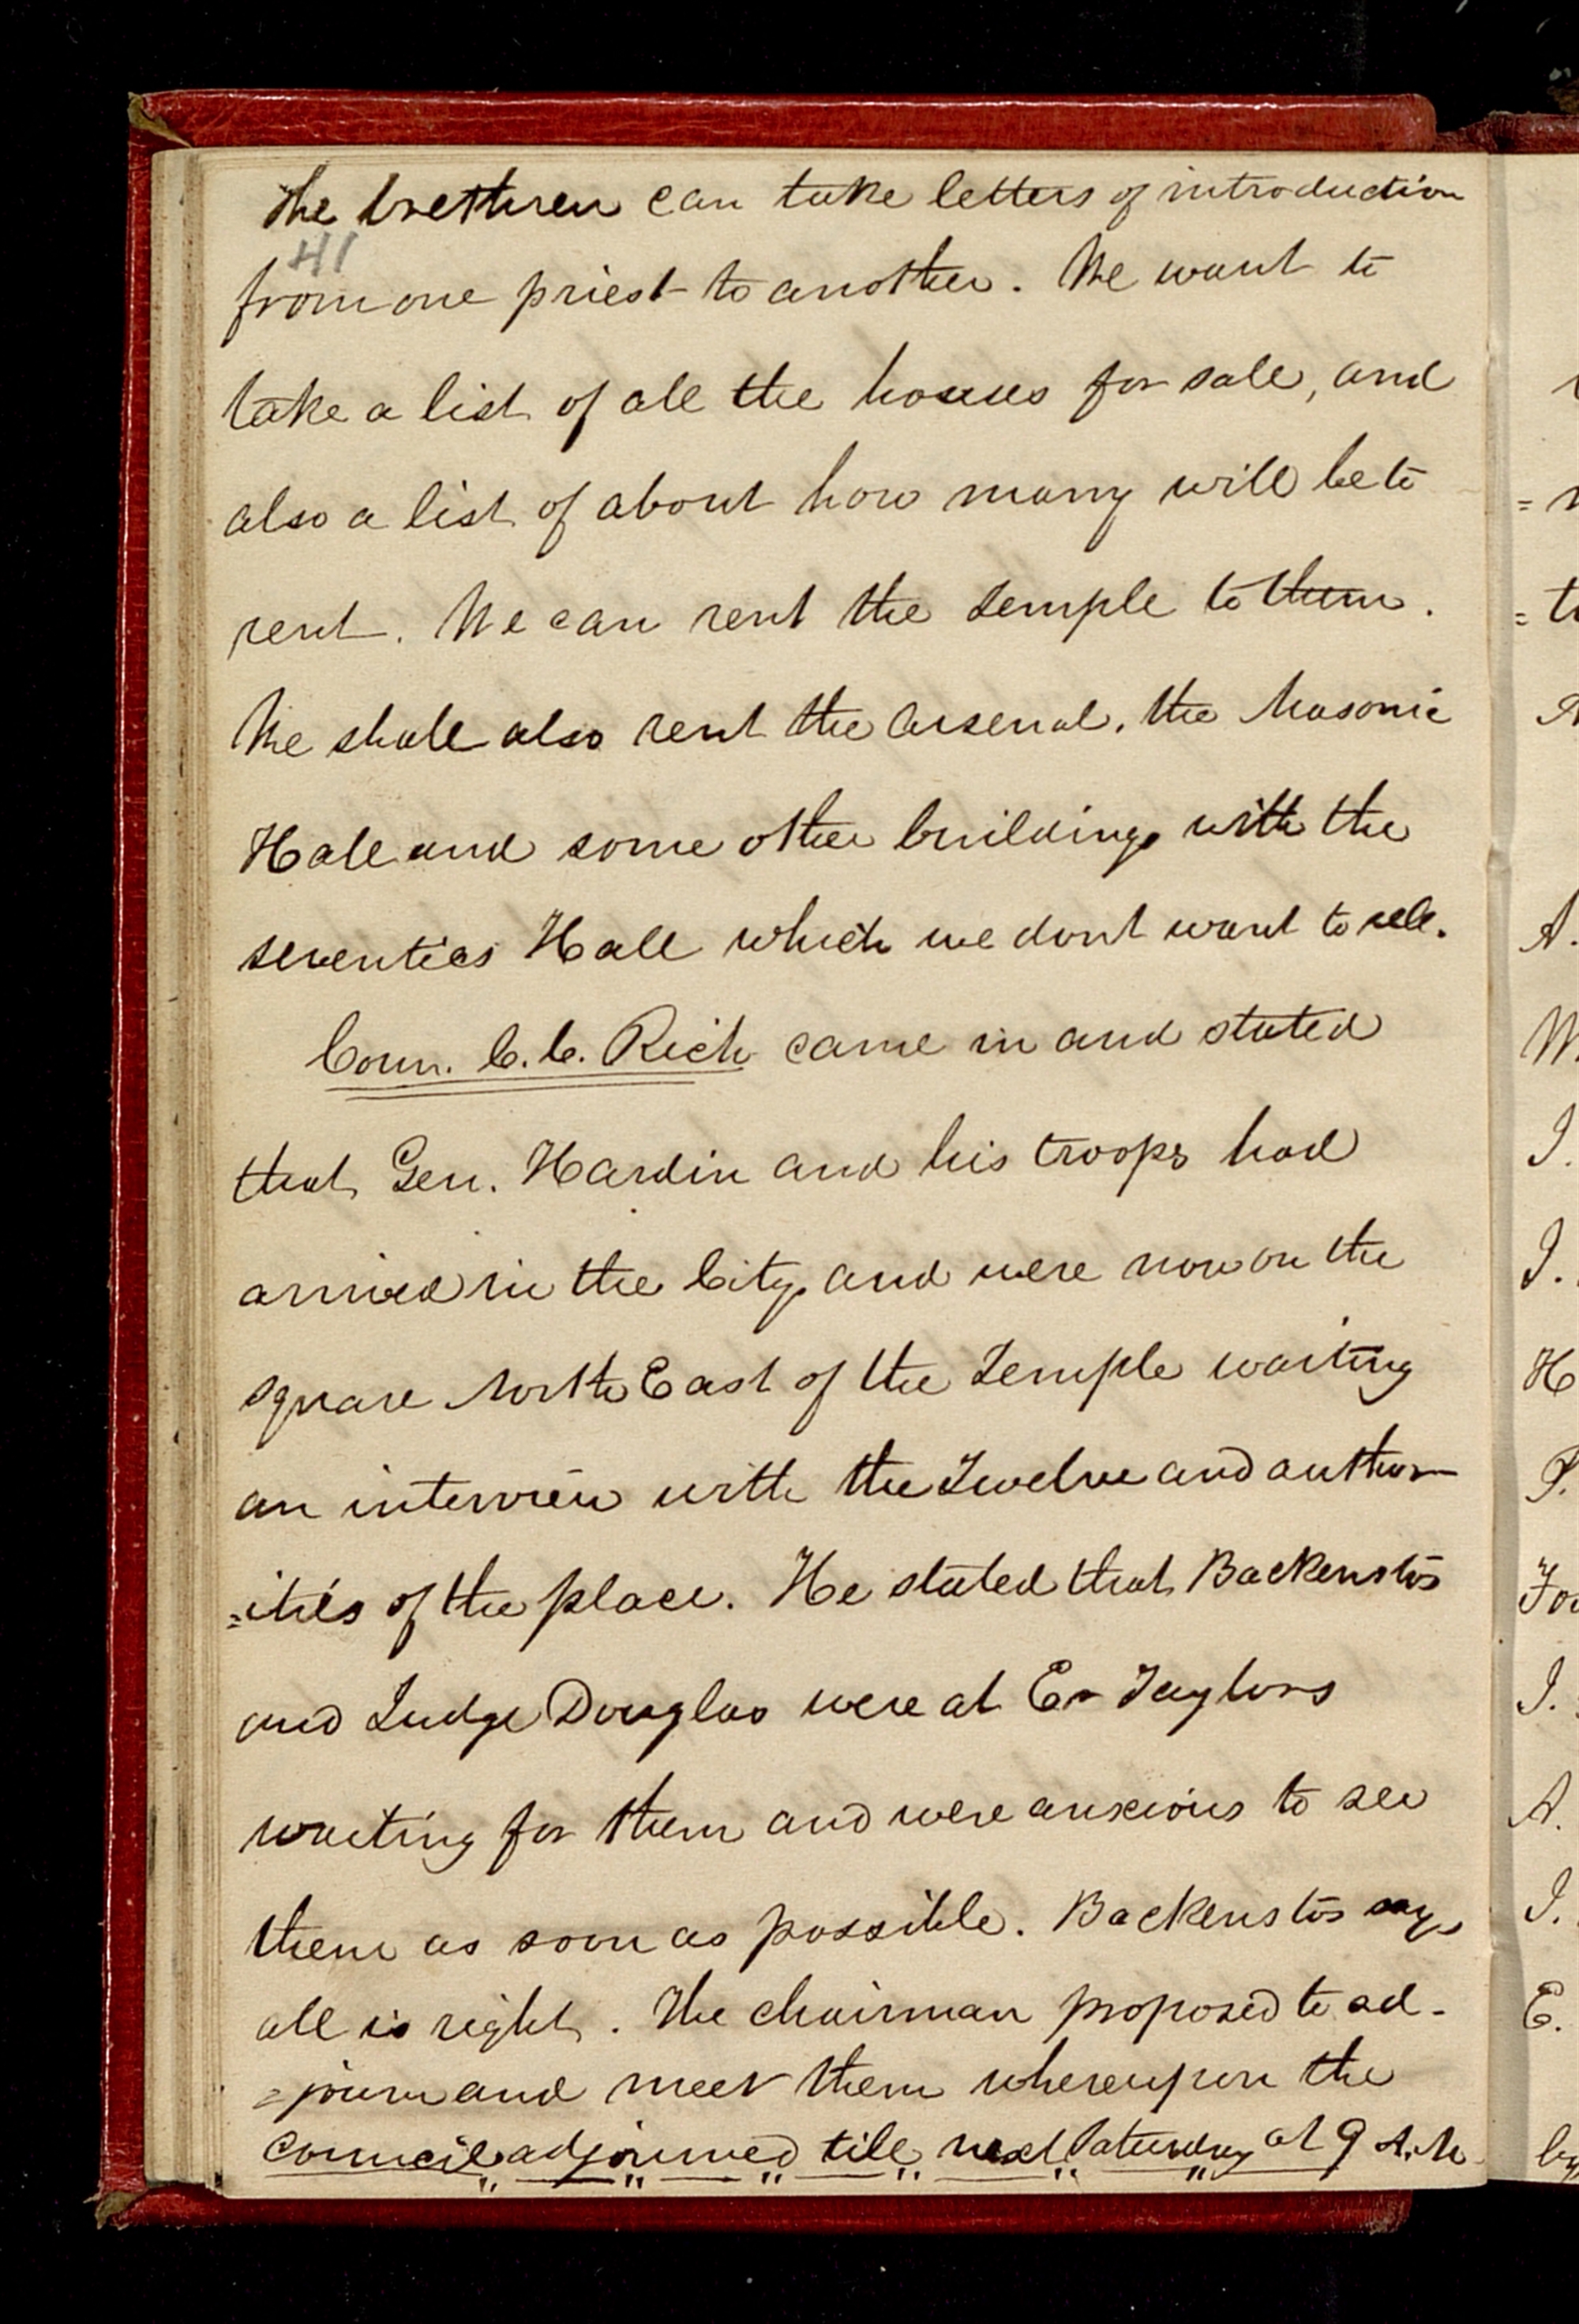 The brethren can take letters of introduction
41
from one priest to another. We want to
take a list of all the houses for sale, and
also a list of about how many will be to
rent. We can rent the Temple to them.
We shall also rent the Arsenal, the Masonic
Hall and some other buildings with the
seventies Hall which we dont want to sell.
Coun. C. C. Rich came in and stated
that Gen. Hardin and his troops had
arrived in the City and were now on the
square North East of the Temple waiting
an interview with the Twelve and author-
=ities of the place. He stated that Backenstos
and Judge Douglas were at Er Taylors
waiting for them and were anxious to see
them as soon as possible. Backenstos says
all is right. The chairman proposed to ad-
=journ and meet them whereupon the
council adjourned till next Saturday at 9 A.M